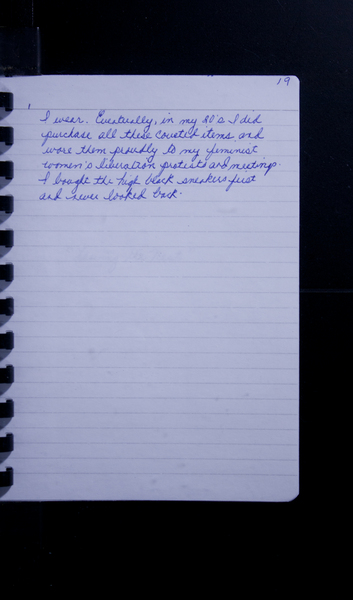 19
I wear. Eventually, in my 20's I did
purchase all these coveted items and
wore them proudly to my feminist
women's liberation protests and meetings.
I bought the high black sneakers first
and never looked back.